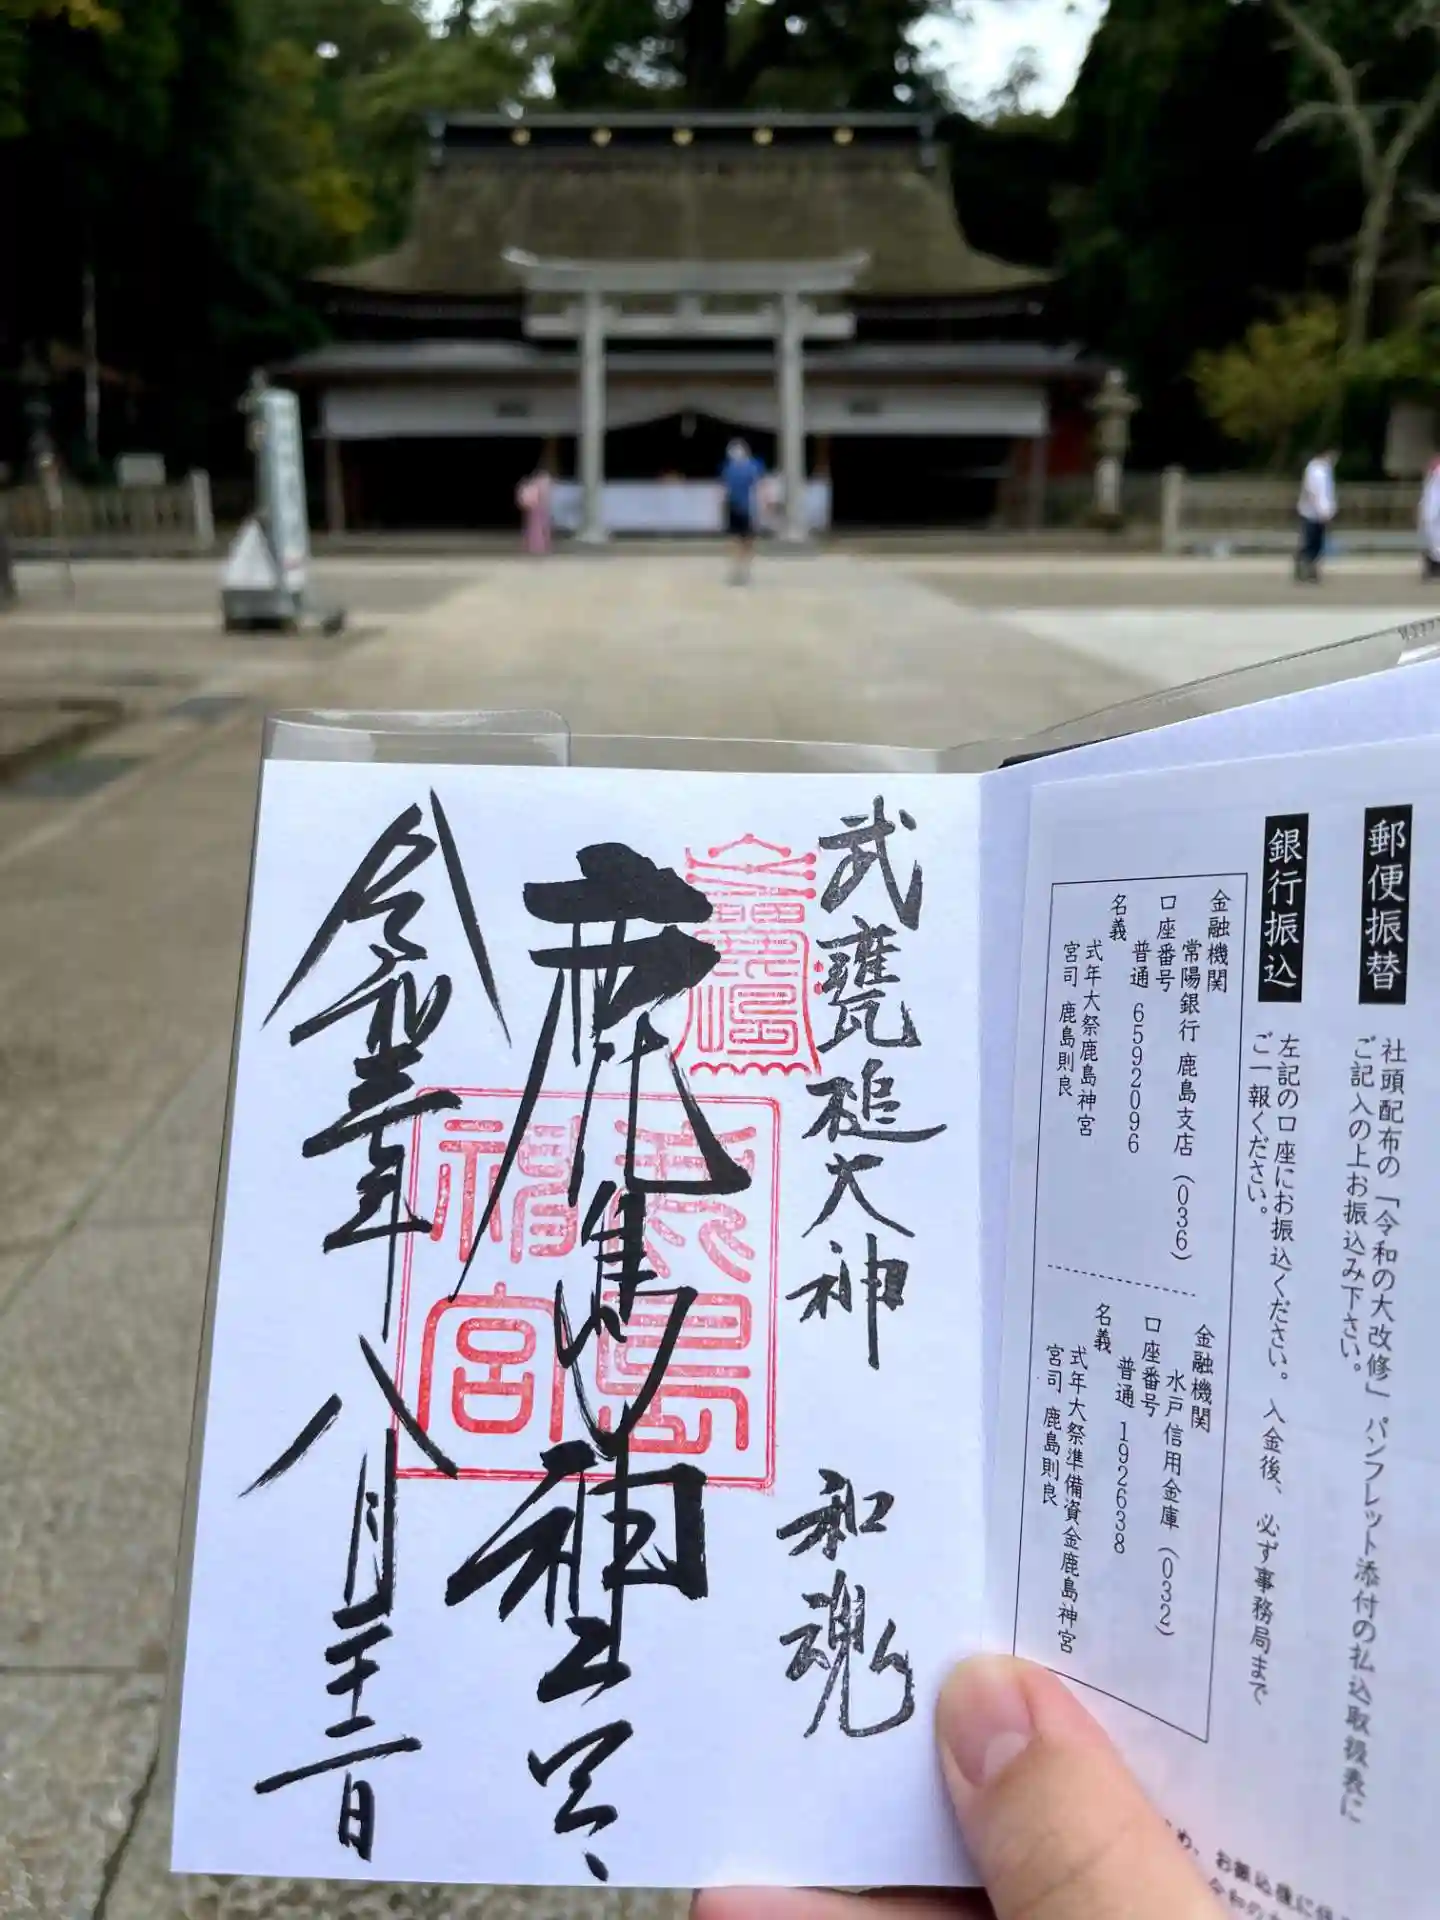 郵便振替
社頭配布の「令和の大改修」パンフレット添付の払込取扱票に
ご記入の上お振込み下さい。
銀行振込
左記の口座にお振込ください。入金後、必ず事務局まで
ご一報ください。
金融機関
常陽銀行 鹿島支店(036)
口座番号
普通 6592096
名義
式年大祭鹿島神宮
宮司 鹿島則良
金融機関
水戸信用金庫(032)
口座番号
普通 192638
名義
式年大祭準備資金鹿島神宮
宮司 鹿島則良
武甕槌大神 和魂
鹿島神宮
鹿島
神宮
令和三年八月二十二日